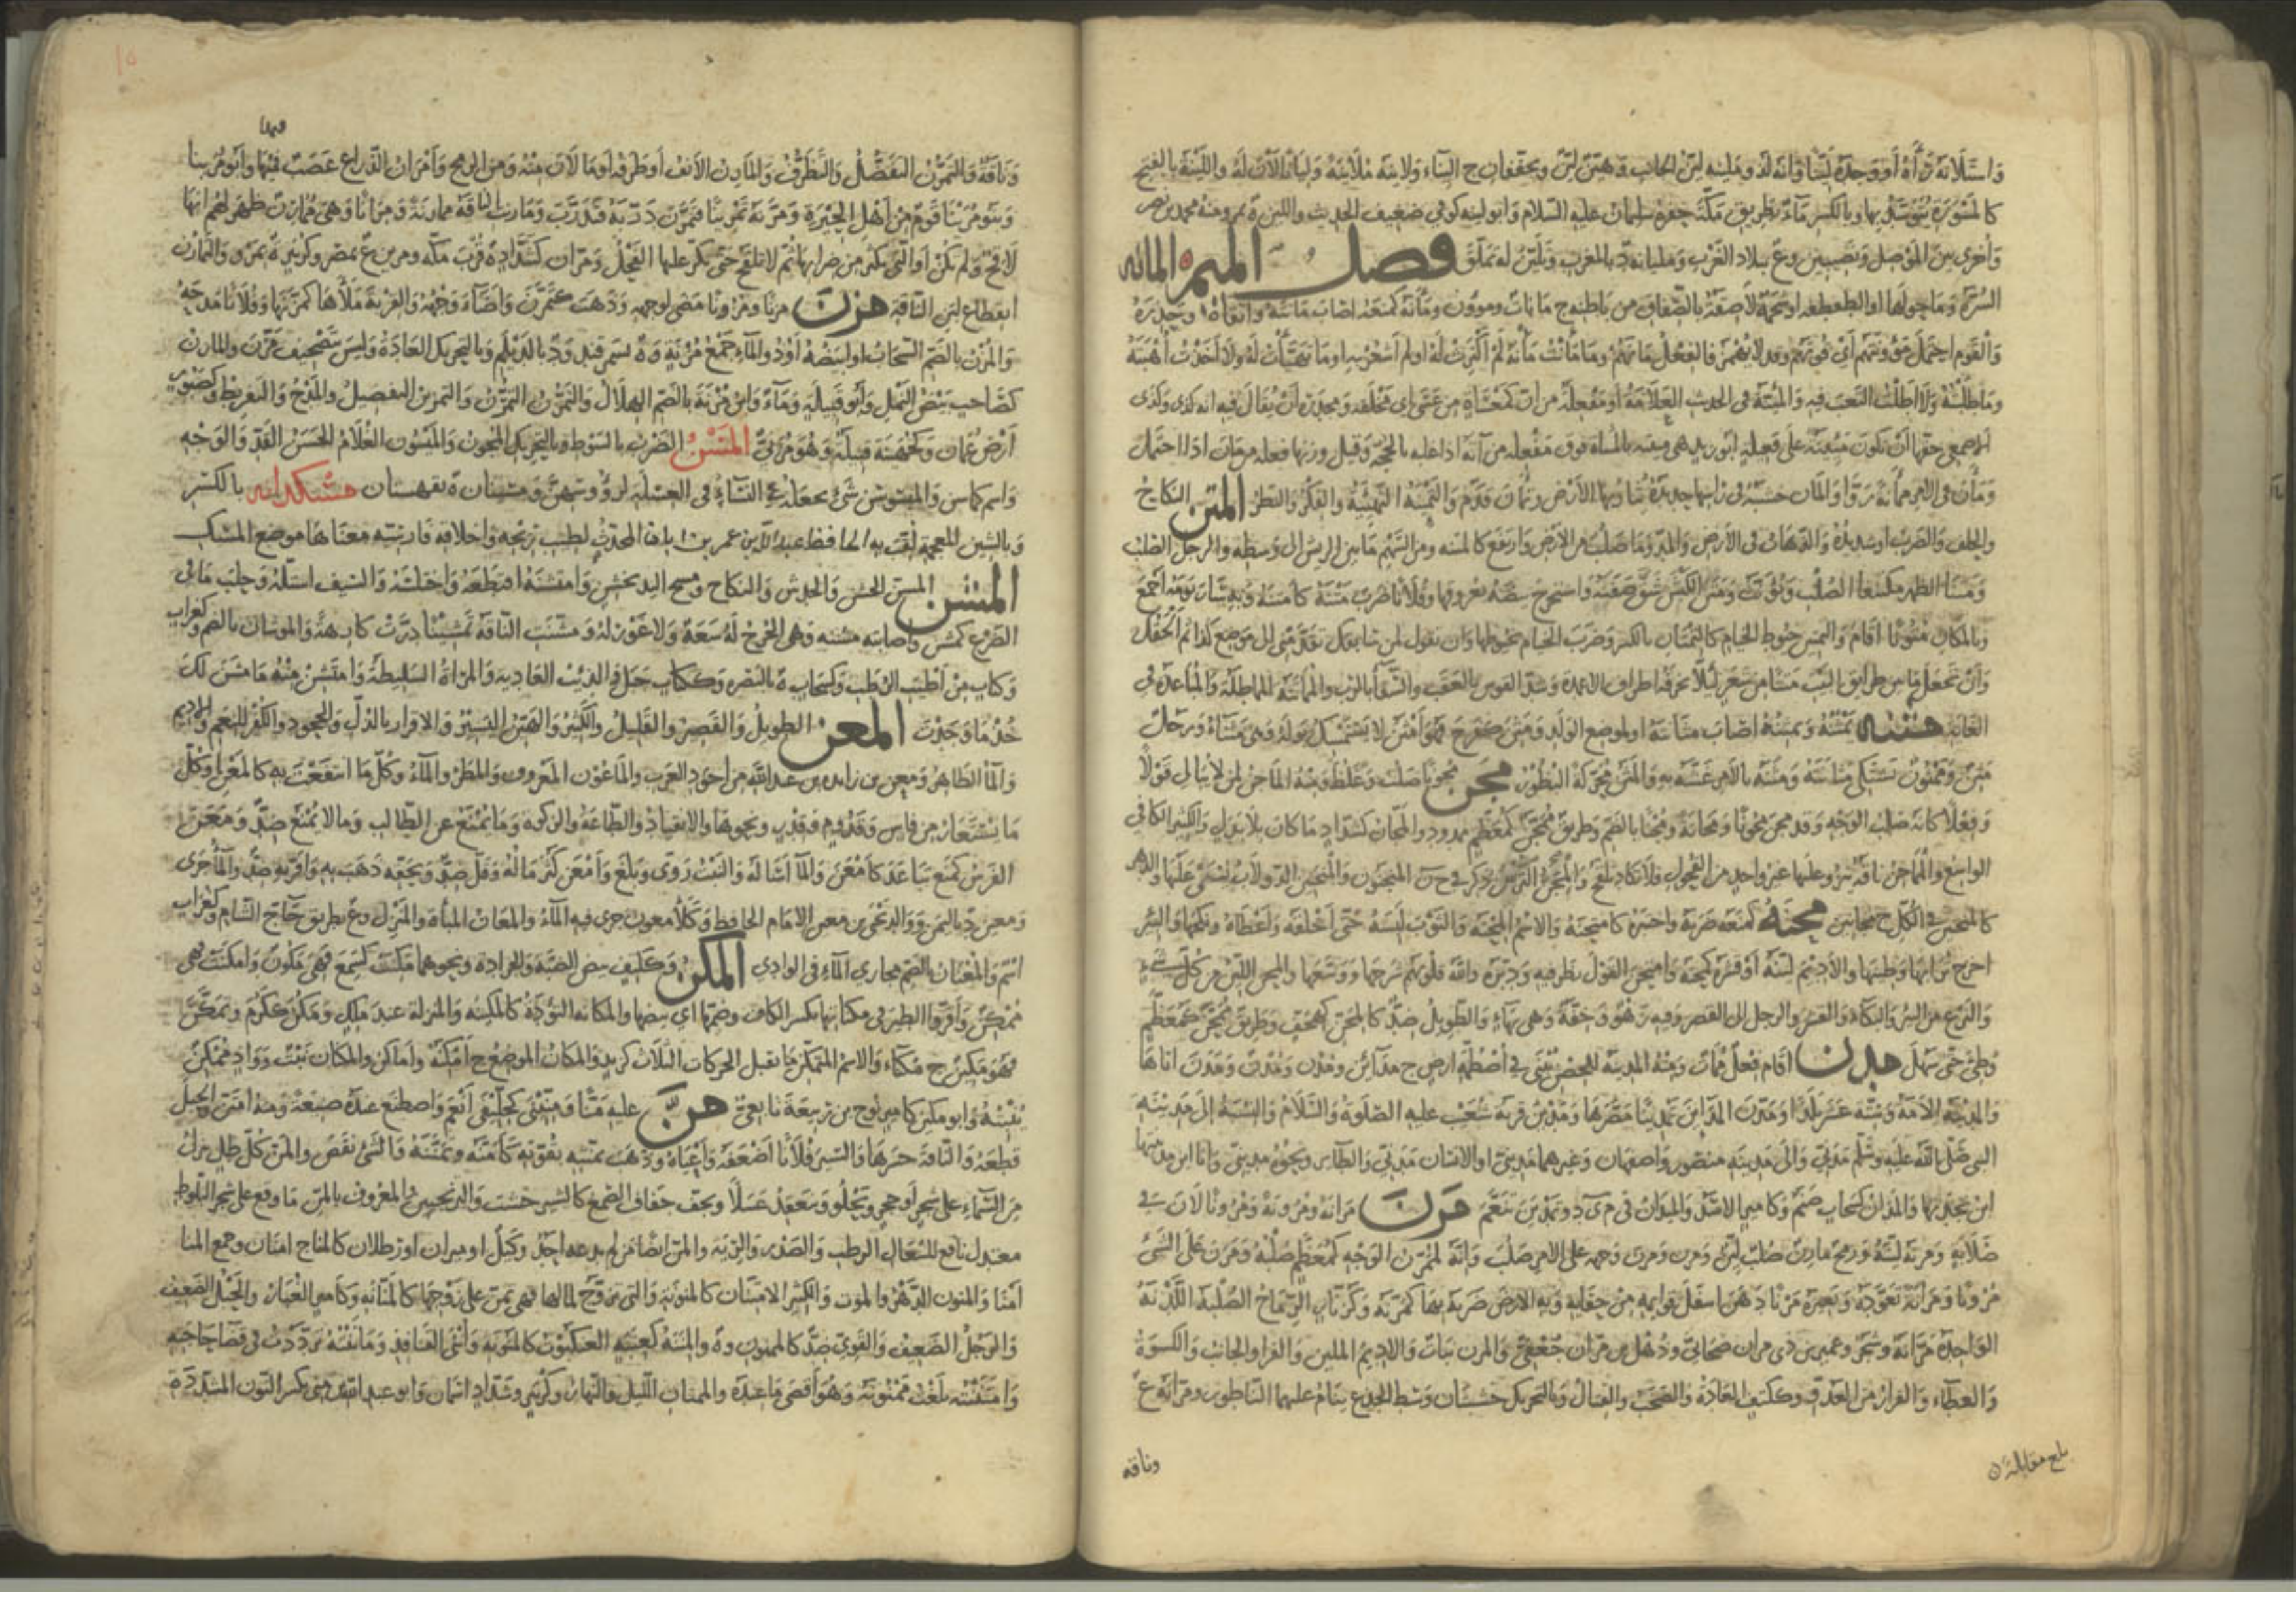 واستلانه رآه او وجده لينا وانه لذو ملينه لين الجانب وهين لين ويخففان ج اليناء ولاينه ملاينة وليانا لان له واللينة بالفتح
كالمسورة يتوسد بها وبالكسر ماء بطريق مكة حفره سليمان عليه السلام وابو لينه كوفي ضعيف الحديث واللين ة بمرو منه محمد بن نصر
واخرى بين الموصل ونصيبين وع ببلاد الغرب ومليانه د بالمغرب وتلين له تملق فصل الميم المانه
السرة وما حولها او الطفطفه او شحمة لاصقة بالصفاق من باطنه ج مانات ومؤون ومأنه كمنعه اصاب مانته واتقاه وحذره
والقوم احتمل مؤونتهم اي قوتهم وقد لا يهمز فالفعل مانهم وما مأنت مأنه لم اكترث له او لم اشعر به او ما تهيأت له ولا اخذت اهبته
وما طلبته ولا اطلت التعب فيه والمئنة في الحديث العلامة او مفعلة من ان كمعساة من عسى اي مخلقه ومجدرة ان يقال فيه انه كذى وكذى
الاصمعي حقها ان تكون مئينة على فعيلة ابو زيد هي مئته بالمثناة فوق مفعله من أته اذا غلبه بالحجة وقيل وزنها فعله من مان اذا احتمل
وماءن في الامر مماءنة روأ والمان خشبة في راسها حديدة تثار بها الارض وتمأن قدم والتمئنة التهيئة والفكر والنظر المتن النكاح
والحلف والضرب او شديده والذهاب في الارض والمد وما صلب من الارض وارتفع كالمتنه ومن السهم ما بين الريش الى وسطه والرجل الصلب
ومتنا الظهر مكتنفا الصلب ويؤنث ومتن الكبش شق صفنه واستخرج بيضه بعروقها وفلانا ضرب متنه كامتنه وبه سار به يومه اجمع
وبالمكان متونا اقام والتمتين خيوط الخيام كالتمتان بالكسر وضرب الخيام بخيوطها وان تقول لمن سابقك تقدمني الى موضع كذا ثم الحقك
وان تجعل ما بين طرائق البيت متنا من شعر ليلا تمزقه اطراف الاعمدة وشد القوس بالعقب والسقاء بالرب والمماتنة المماطلة والمباعدة في
الغاية مثنه يمثنه ويمثنه اصاب مثانته وهو موضع الولد ومثن كفرح فهو امثن لا يستمسك بوله وهي مثناء ورجل
مثن وممثون تشتكي مثانته ومثنه بالامر غته به والمثن محركة البظور مجن مجونا صلب وغلظ ومنه الماجن لمن لا يبالي قولا
وفعلا كانه صلب الوجه وقد مجن مجونا ومجانة ومجنا بالضم وطريق ممجن كمعظم ممدود والمجان كشداد ما كان بلا بدل والكثير الكافي
الواسع والمماجن ناقة ينزو عليها غير واحد من الفحول فلا تكاد تلقح والمجن الترس ذكر في ج ن المنجنون والمنجنين الدولاب يستقى عليها والدهر
كالمنجنين في الكل ج مناجين محنه كمنعه ضربه واختبره كامتحنه والاسم المحنة والثوب لبسه حتى اخلقه واعطاه ونكحها والبئر
اخرج ترابها وطينها والاديم لينه او قشره كمحنه وامتحن القول نظر فيه ودبره والله قلوبهم شرحها ووسعها والمحن اللين من كل شيء
والنزع من البئر والبكاء والقشر والرجل الى القصر وفيه زهو وخفة وهي بهاء والطويل ضد كالمخن كهجف وطريق ممخن كمعظم
وطئ حتى سهل مدن اقام فعل ممات ومنه المدينة للحصن يبنى في اصطمة ارض ج مدائن ومدن ومدن ومدن اتاها
والمدينة الامة وستة عشر بلدا ومدن المدائن تمدينا مصرها ومدين قرية شعيب عليه الصلوة والسلام والنسبة الى مدينة
النبي صلى الله عليه وسلم مدني والى مدينه منصور واصفهان وغيرهما مديني او الانسان مدني والطائر ونحوه مديني وانا ابن مدينتها
ابن بجدتها والمدان كسحاب صنم وكامير الاسد والميدان في م ي د وتمدين تنعم مرن مرانة ومرونة ومرونا لان في
صلابة ومرنته لينته ورمح مارن صلب لين ومرن ومرن وجهه على الامر صلب وانه لممرن الوجه كمعظم صلبه ومرن على الشيء
مرونا ومرانة تعوده وبعيره مرنا دهن اسفل قوائمه من حفا به وبه الارض ضربه بها كمرنه وكزنار الرماح الصلبة اللدنة
الواحدة مرانة وشجر وعمير بن ذي مران صحابي وذهل بن مران جعفي والمرن نبات والاديم الملين والفرا والجانب والكسوة
والعطاء والفرار من العدو وككتف العادة والصخب والقتال وبالتحريك خشبتان وسط الجذع ينام عليهما الناطور ومرانة ع
بلغ مقابلة ن
وناقه
وناقة والتمرن التفضل والتظرف والمارن الانف او طرفه او ما لان منه ومن الرمح وامران الذراع عصب فيها وابو مرينا
وبنو مرينا قوم من اهل الحيرة ومرنه تمرينا فتمرن دربه فتدرب ومارنت الناقة ممارنة ومرانا وهي ممارن ظهر لهم انها
لاقح ولم تكن او التي يكثر من ضرابها ثم لا تلقح حتى يكر عليها الفحل ومران كشداد ة قرب مكه ومرين ع بمصر وكزبير ة بمرو والتمارن
انقطاع لبن الناقة مزن مزنا ومزونا مضى لوجهه وذهب كتمزن واضاء وجهه والقربة ملأها كمزنها وفلانا مدحه
والمزن بالضم السحاب او ابيضه او ذو الماء جمع مزنة وة بسمرقند ود بالديلم وبالتحريك العادة وليس بتصحيف مرن والمازن
كصاحب بيض النمل وابو قبيلة وماء وابن مزنة بالضم الهلال والتمزن التمرن والتمزين التفضيل والمدح والتقريظ وكصبور
ارض عمان وكجهينة قبيلة وهو مزني المسن الضرب بالسوط وبالتحريك المجون والميسون الغلام الحسن القد والوجه
واسم كماس والميسوسن شيء يجعله النساء في الغسله لرؤوسهن ومسينان ة بقهستان مشكدانه بالكسر
وبالشين المعجمة لقب به الحافظ عبد الله بن عمر بن ابان المحدث لطيب ريحه واخلاقه فارسيته معناها موضع المسك
المشن المشق الخدش والنكاح ومسح اليد بخشن وامتشنه اقتطعه واختلسه والسيف استله وحلب ما في
الضرع كمشن واصابته مشنه وهي الجرح له سعة ولا غور له ومشنت الناقة تمشينا درت كارهة والموشان بالضم وكغراب
وكتاب من اطيب الرطب وكسحاب ة بالبصره وككتاب جبل والذئب العاديه والمرأة السليطة وامتشن منه ما مشن لك
خذ ما وجدت المعن الطويل والقصير والقليل والكثير والهين اليسير والاقرار بالذل والجحود والكفر للنعم والاديم
والماء الظاهر ومعن بن زايده بن عبد الله من اجود العرب والماعون المعروف والمطر والماء وكل ما انتفعت به كالمعن او كل
ما يستعار من فاس وقدوم وقدر ونحوها والانقياد والطاعة والزكوة وما يمنع عن الطالب وما لا يمنع ضد ومعن
الفرس كمنع تباعد كامعن والماء اساله والنبت روى وبلغ وامعن كثر ماله وقل ضد وبحقه ذهب به واقر به ضد والماء جرى
ومعين د باليمن ووالد يحيى بن معين الامام الحافظ وكلأ معون جرى فيه الماء والمعان المباءة والمنزل وع بطريق حاج الشام وكغراب
اسم والمعنان بالضم مجاري الماء في الوادي المكن وككتف بيض الضبة والجرادة ونحوهما مكنت كسمع فهي مكون وامكنت فهي
ممكن واقروا الطير في مكناتها بكسر الكاف وضمها اي بيضها والمكانه التؤدة كالمكينه والمنزلة عند ملك ومكن ككرم وتمكن
فهو مكين ج مكناء والاسم المتمكن ما يقبل الحركات الثلاث كزيد والمكان الموضع ج امكنة واماكن والمكنان نبت وواد ممكن
ينبته وابو مكين كامير نوح بن ربيعة تابعي من عليه منا ومنينى كخليفى انعم واصطنع عنده صنيعة ومنه امتن والحبل
قطعه والناقة حسرها والسير فلانا اضعفه واعياه وذهب بمنته بقوته كامنه وتمننه والشيء نقص والمن كل طل ينزل
من السماء على شجر او حجر ويحلو وينعقد عسلا ويجف جفاف الصمغ كالشير خشت والترنجبين والمعروف بالمن ما وقع على شجر البلوط
معتدل نافع للسعال الرطب والصدر والرئة والمن ايضا من لم يدعه احد وكيل او ميزان او رطلان كالمنا ج امنان وجمع المنا
امنا والمنون الدهر والموت والكثير الامتنان كالمنونة والتي تزوج لمالها فهي تمن على زوجها كالمنانه وكامير الغبار والحبل الضعيف
والرجل الضعيف والقوي ضد كالممنون وة والمننة كعنبة العنكبوت كالمنونه وانثى القنافذ ومانته ترددت في قضاء حاجته
وامتننته بلغت ممنونه وهو اقصى ما عنده والممنان الليل والنهار وكزبير وشداد اسمان وابو عبد الله بن منى بكسر النون المشددة